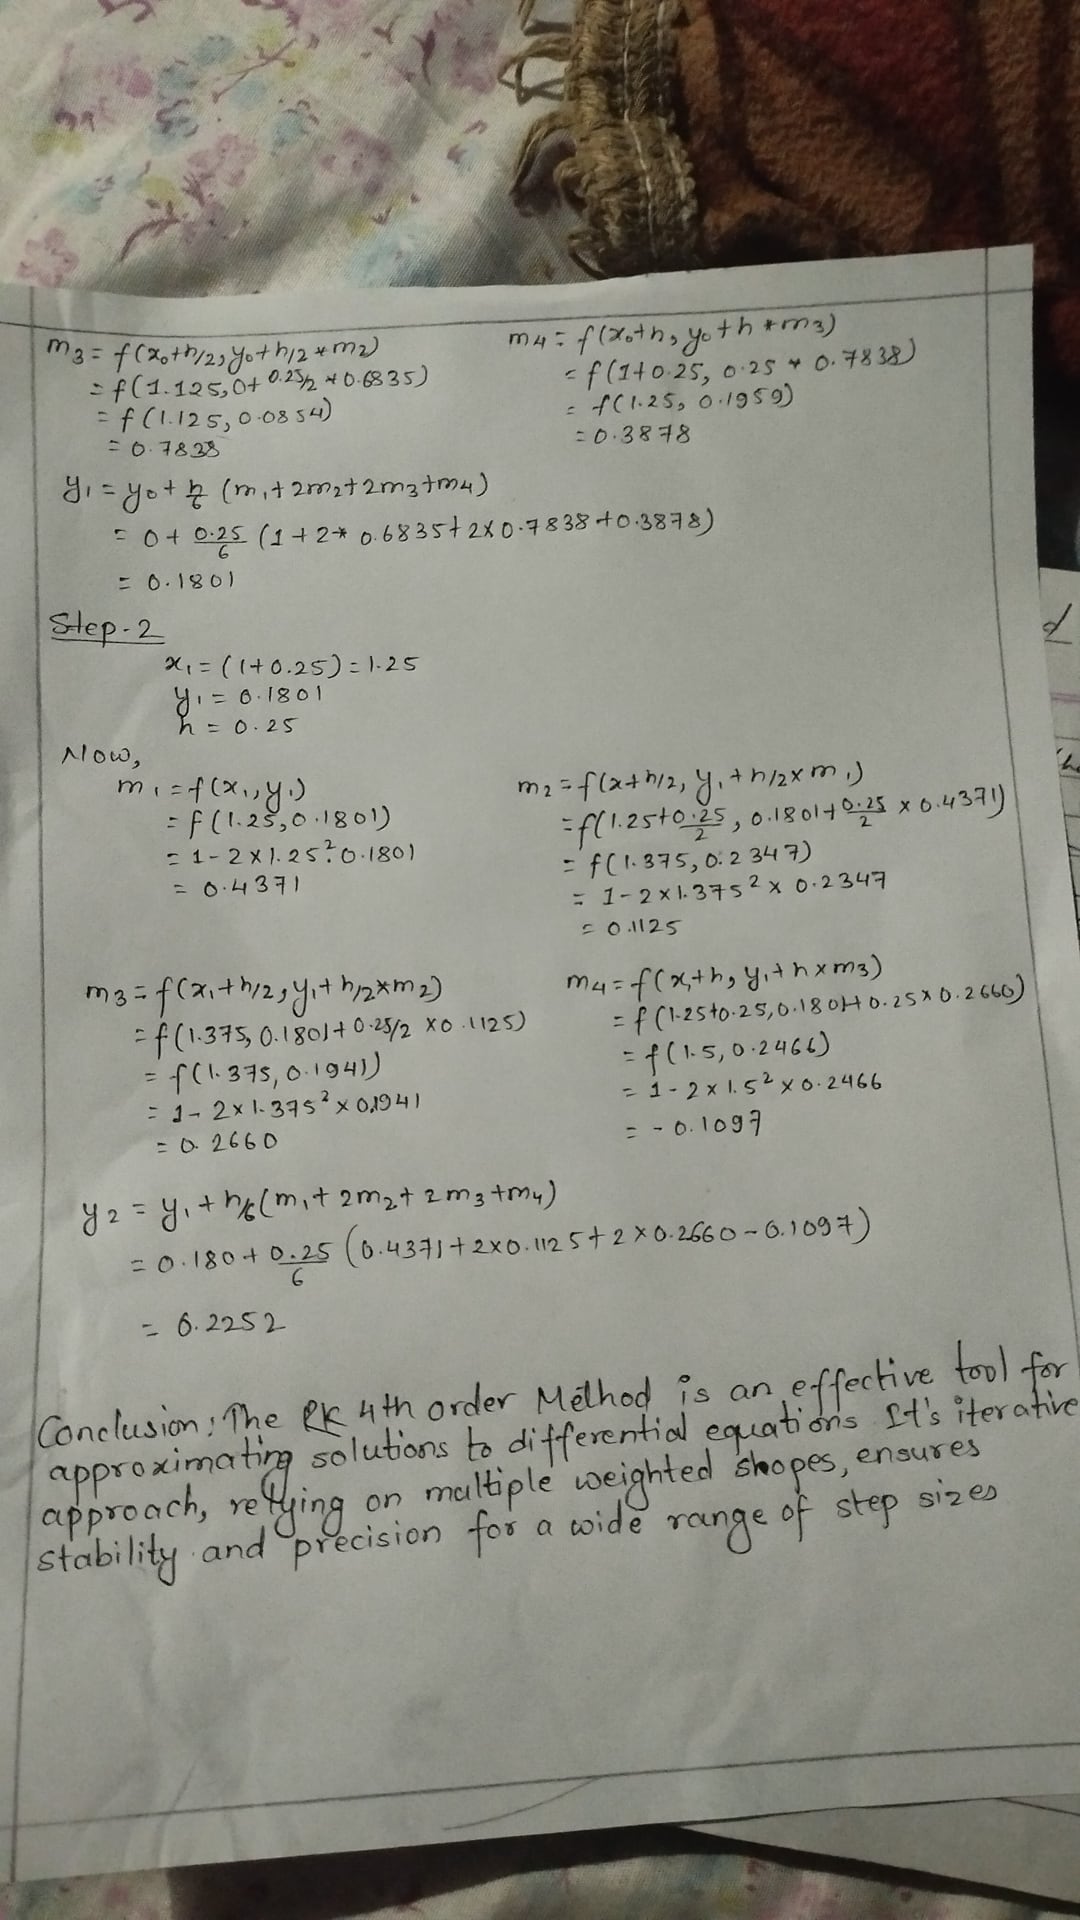 m3 = f(x₀+h/2, y₀+h/2 * m2)
= f(1.125, 0+ 0.25/2 * 0.6835)
= f(1.125, 0.0854)
= 0.7838
m4 = f(x₀+h, y₀+h * m3)
= f(1+0.25, 0.25 * 0.7838)
= f(1.25, 0.1959)
= 0.3878
y₁ = y₀ + h/6 (m₁+2m2+2m3+m4)
= 0 + 0.25/6 (1+2* 0.6835+2×0.7838+0.3878)
= 0.1801
Step-2
x₁ = (1+0.25) = 1.25
y₁ = 0.1801
h = 0.25
Now,
m₁ = f(x₁, y₁)
= f(1.25, 0.1801)
= 1-2×1.25².0.1801
= 0.4371
m2 = f(x+h/2, y₁+h/2×m₁)
= f(1.25+0.25/2, 0.1801+0.25/2 × 0.4371)
= f(1.375, 0.2347)
= 1-2×1.375² × 0.2347
= 0.1125
m3 = f(x₁+h/2, y₁+h/2×m2)
= f(1.375, 0.1801+0.25/2 ×0.1125)
= f(1.375, 0.1941)
= 1-2×1.375²×0.1941
= 0.2660
m4 = f(x₁+h, y₁+h×m3)
= f(1.25+0.25, 0.1801+0.25×0.2660)
= f(1.5, 0.2466)
= 1-2×1.5²×0.2466
= -0.1097
y2 = y₁+h/6(m₁+2m2+2m3+m4)
= 0.180+0.25/6 (0.4371+2×0.1125+2×0.2660-0.1097)
= 0.2252
Conclusion: The RK 4th order Method is an effective tool for
approximating solutions to differential equations It's iterative
approach, relying on multiple weighted slopes, ensures
stability and precision for a wide range of step sizes